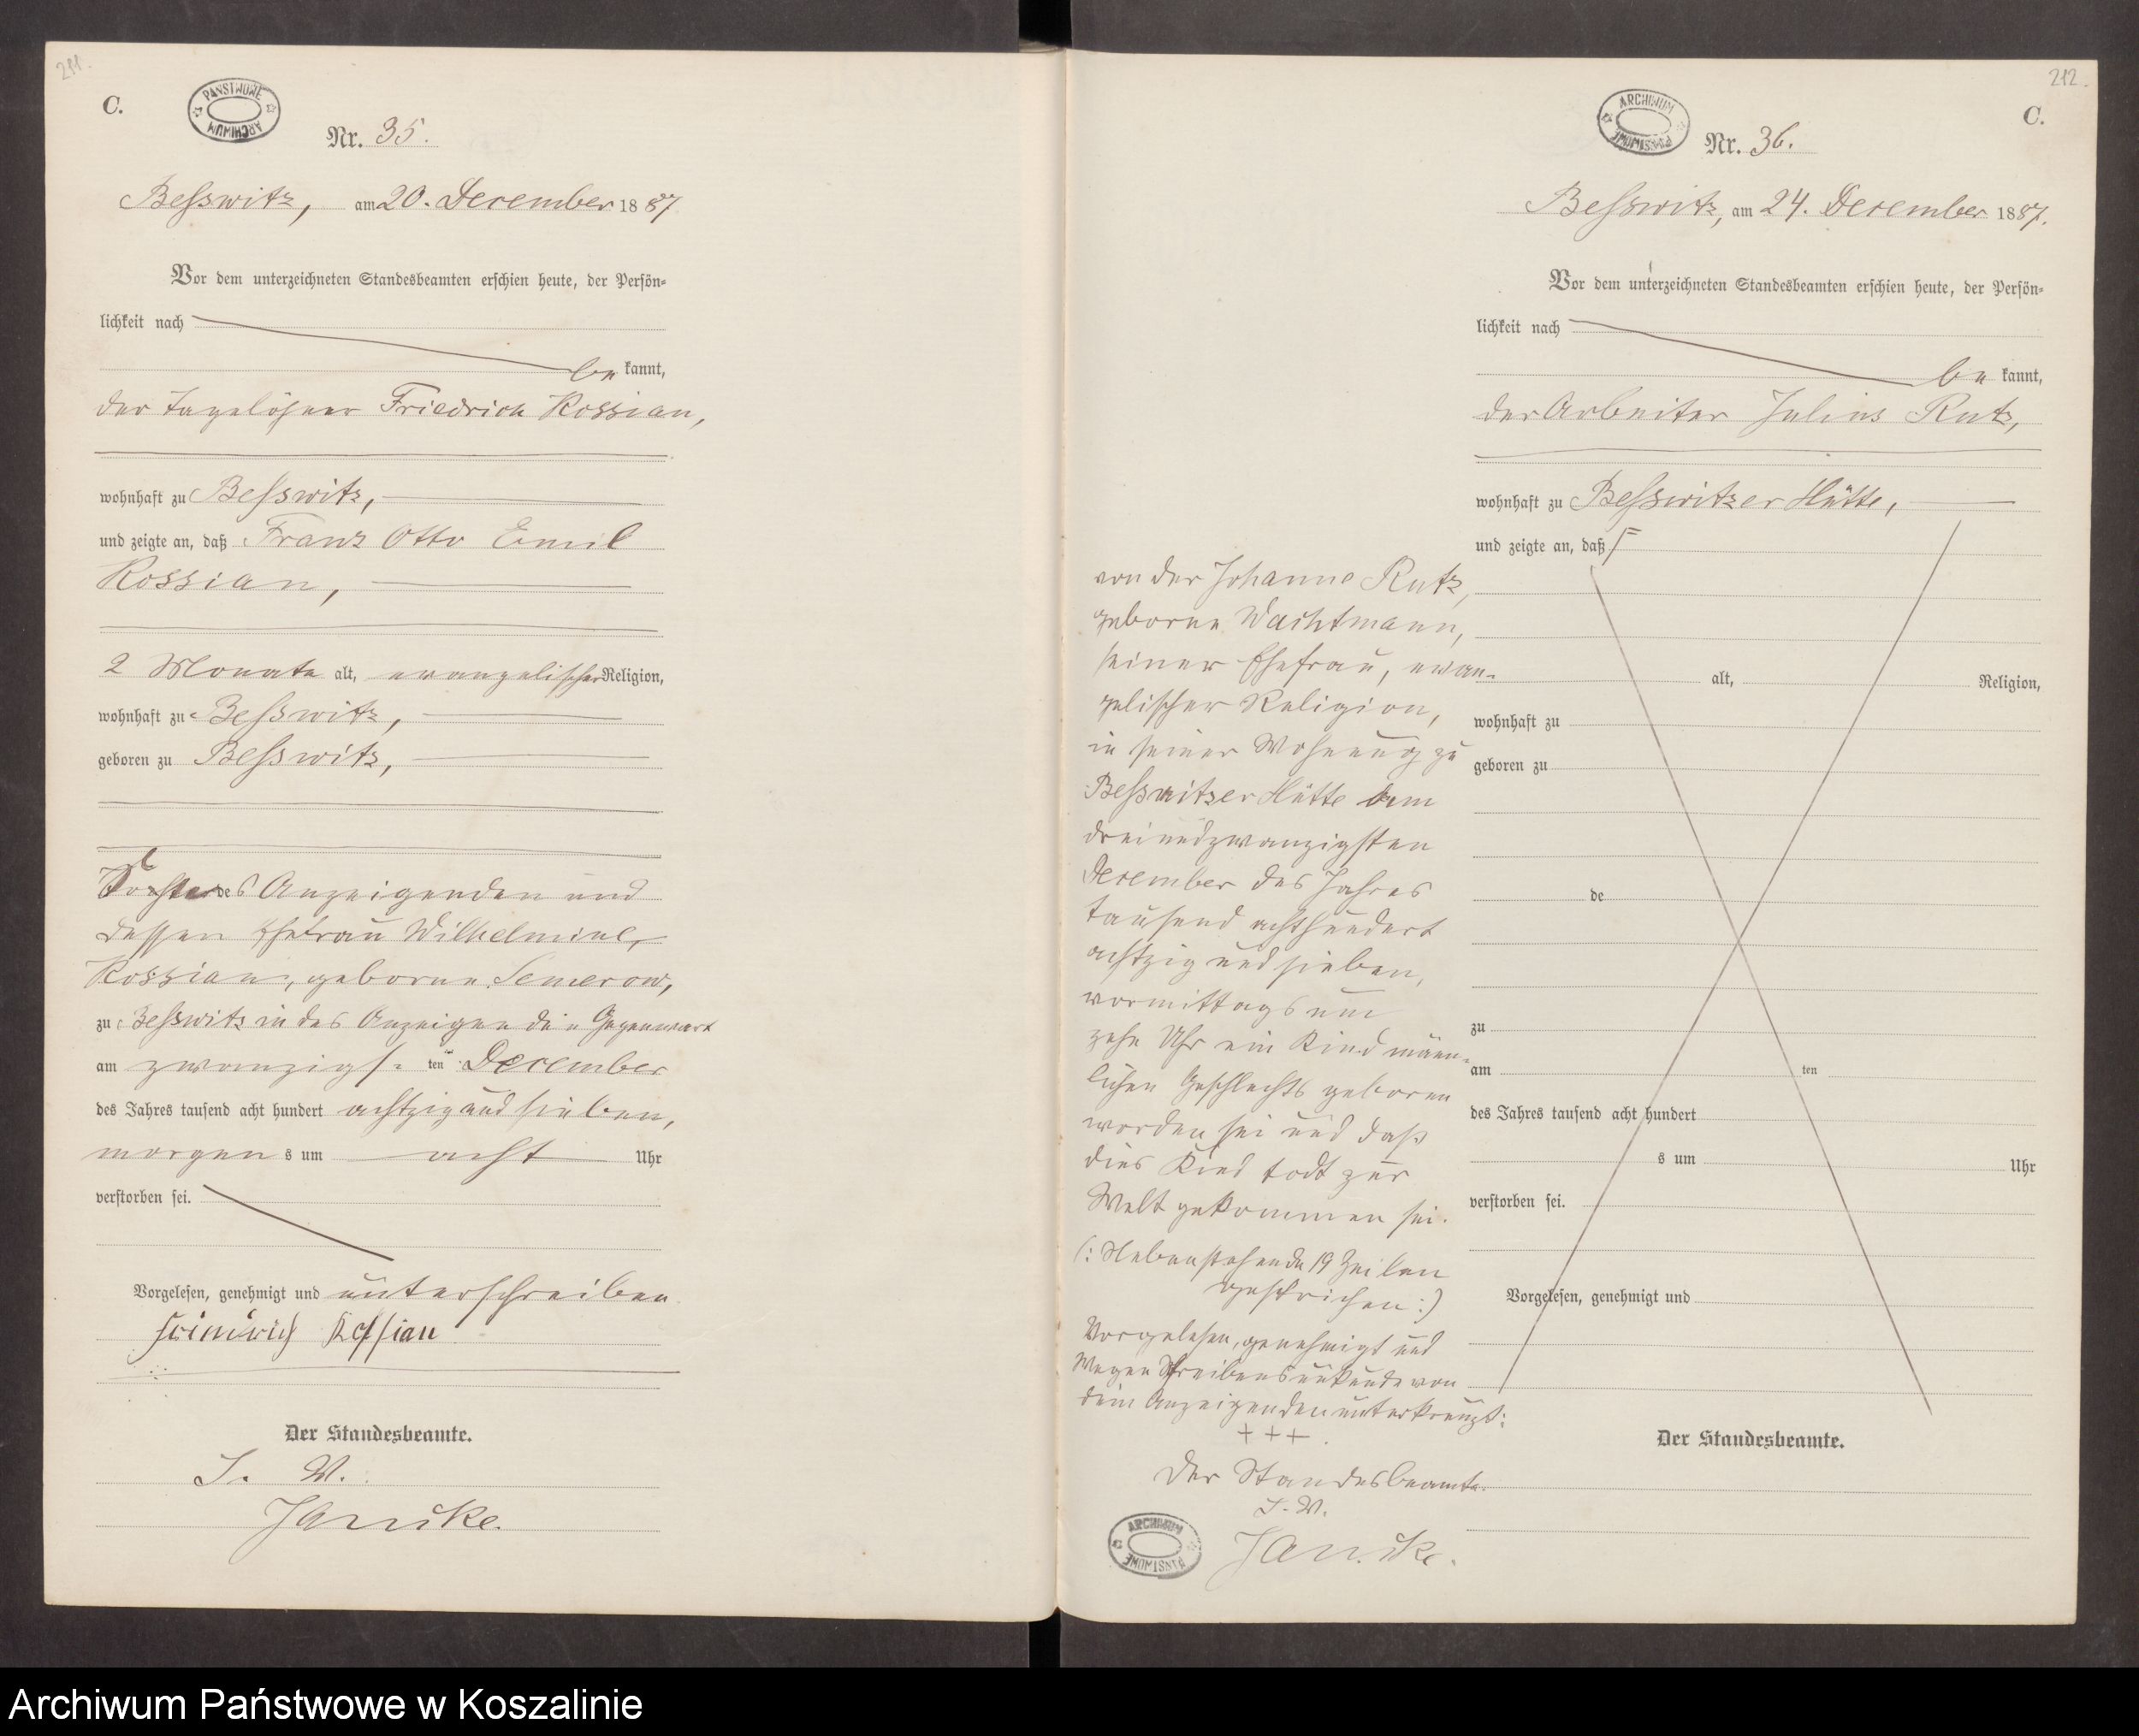 211.
C.
PAŃSTWOWE ARCHIWUM
Nr. 35.
Besswitz, am 20. December 1887
Vor dem unterzeichneten Standesbeamten erschien heute, der Persön-
lichkeit nach
be kannt,
der Tagelöhner Friedrich Rossian,
wohnhaft zu Besswitz,
und zeigte an, daß Franz Otto Emil
Rossian,
2 Monate alt, evangelischer Religion,
wohnhaft zu Besswitz,
geboren zu Besswitz,
des Anzeigenden und
dessen Ehefrau Wilhelmine,
Rossian, geborne Semerow,
zu Besswitz in des Anzeigende Gegenwart
am zwanzigs. ten December
des Jahres tausend acht hundert achtzig und sieben,
morgen s um acht Uhr
verstorben sei.
Vorgelesen, genehmigt und unterschreiben
Friedrich Rossian
Der Standesbeamte.
I. V.
Jancke.
212.
C.
ARCHIWUM PAŃSTWOWE
Nr. 36.
Besswitz, am 24. December 1887.
Vor dem unterzeichneten Standesbeamten erschien heute, der Persön-
lichkeit nach
be kannt,
der Arbeiter Julius Rutz,
wohnhaft zu Besswitzer Hütte,
und zeigte an, daß
von der Johanne Rutz,
geborne Wachtmann,
seiner Ehefrau, evan-
gelischer Religion,
in seiner Wohnung zu
Besswitzer Hütte am
dreiundzwanzigsten
December des Jahres
tausend achthundert
achtzig und sieben,
vormittags um
zehn Uhr ein Kind männ-
lichen Geschlechts geboren
worden sei und daß
dies Kind todt zur
Welt gekommen sei.
(: Nebenstehende 19 Zeilen
gestrichen :)
Vorgelesen, genehmigt und
Wegen Schreibensunkunde von
dem Anzeigenden unterkreuzt:
+++
Der Standesbeamte.
I. V.
Jancke.
ARCHIWUM PAŃSTWOWE
alt, Religion,
wohnhaft zu
geboren zu
de
zu
am ten
des Jahres tausend acht hundert
s um Uhr
verstorben sei.
Vorgelesen, genehmigt und
Der Standesbeamte.
Archiwum Państwowe w Koszalinie